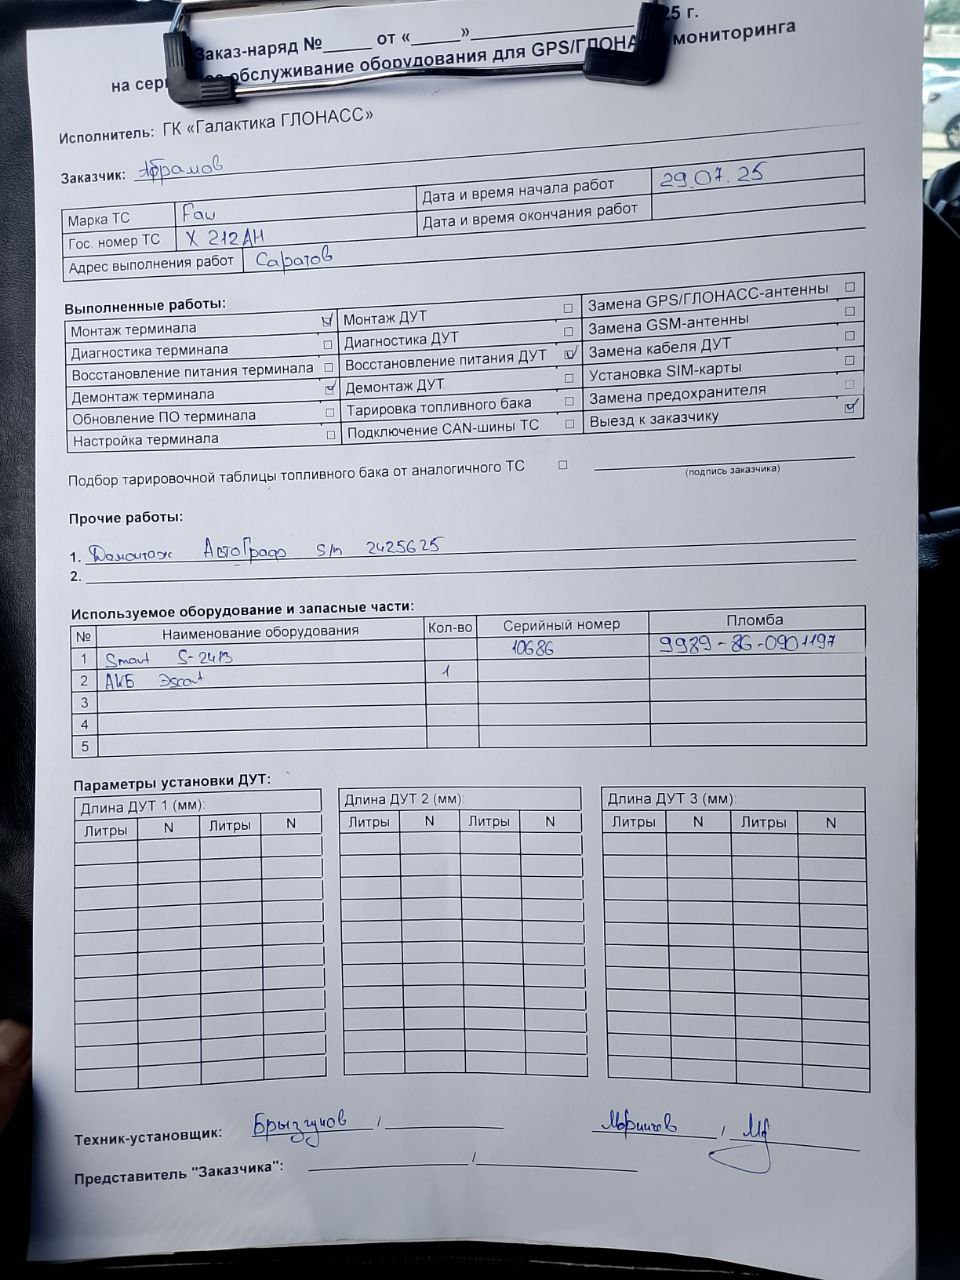 Заказ-наряд №_____ от «_____»_______________ 25 г.
на обслуживание оборудования для GPS/ГЛОНАСС мониторинга
Исполнитель: ГК «Галактика ГЛОНАСС»
Заказчик: Абрамов
Марка ТС Faw Дата и время начала работ 29.07.25
Гос. номер ТС Х 212АН Дата и время окончания работ
Адрес выполнения работ Саратов
Выполненные работы:
Монтаж терминала ☑ Монтаж ДУТ ☐ Замена GPS/ГЛОНАСС-антенны ☐
Диагностика терминала ☐ Диагностика ДУТ ☐ Замена GSM-антенны ☐
Восстановление питания терминала ☐ Восстановление питания ДУТ ☑ Замена кабеля ДУТ ☐
Демонтаж терминала ☑ Демонтаж ДУТ ☐ Установка SIM-карты ☐
Обновление ПО терминала ☐ Тарировка топливного бака ☐ Замена предохранителя ☐
Настройка терминала ☐ Подключение CAN-шины ТС ☐ Выезд к заказчику ☑
Подбор тарировочной таблицы топливного бака от аналогичного ТС ☐
(подпись заказчика)
Прочие работы:
1. Демонтаж АвтоГрафа s/n 2425625
2.
Используемое оборудование и запасные части:
№ Наименование оборудования Кол-во Серийный номер Пломба
1 Smart S-2413 10686 9989-86-0901197
2 АКБ Эscort 1
3
4
5
Параметры установки ДУТ:
Длина ДУТ 1 (мм): Длина ДУТ 2 (мм): Длина ДУТ 3 (мм):
Литры N Литры N Литры N Литры N Литры N Литры N
Техник-установщик: Брызгунов / /
Представитель "Заказчика": /